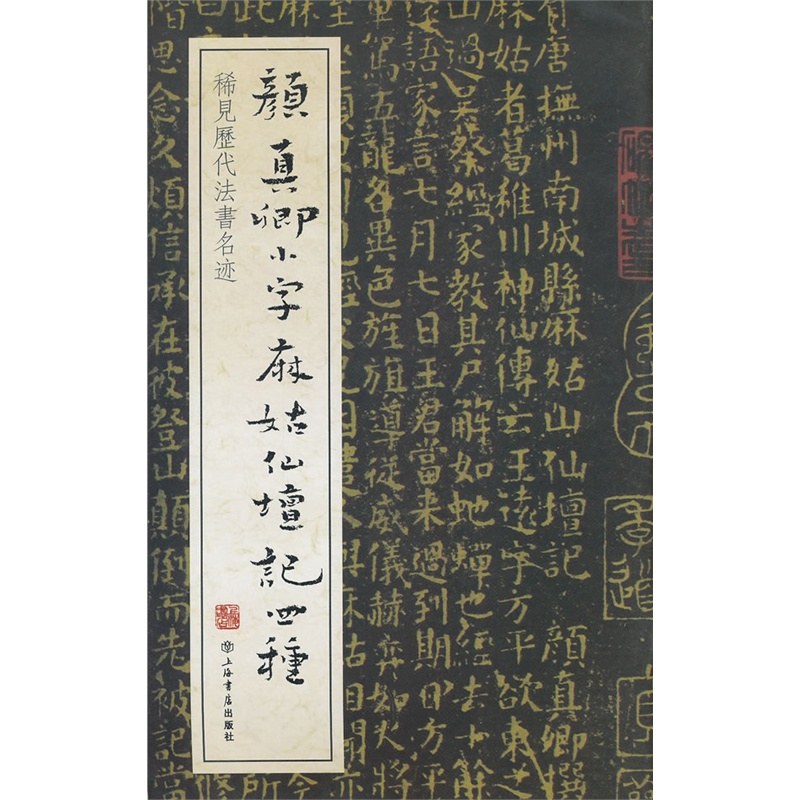 有唐撫州南城縣麻姑山仙壇記 顏真卿撰
麻姑者葛稚川神仙傳云王遠字方平欲東之
山過吳蔡經家教其尸解如蛇蟬也經去十餘
語家言七月七日王君當來過到期日方平
車駕五龍各異色旌旗導從威儀赫奕如大將
顏真卿小字麻姑仙壇記四種
稀見歷代法書名迹
上海書店出版社
階思念久煩信承在彼登山顛倒而先被記當